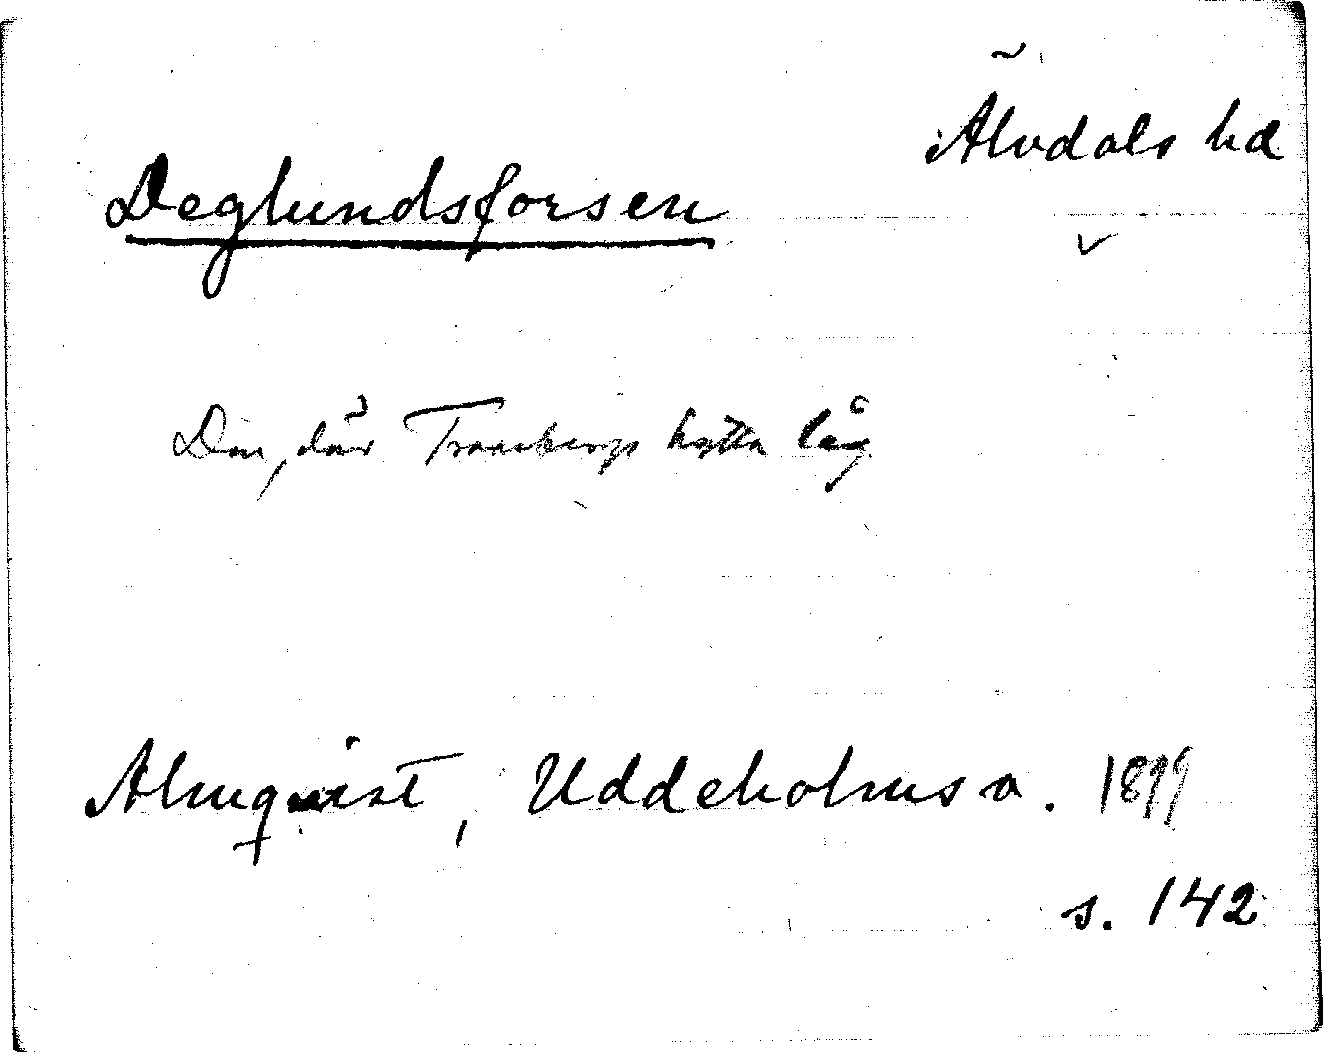 Älvdals hd
Deglundsforsen
Den, där Tranbergs hytta låg
Almqvist, Uddeholms a. 1899
s. 142